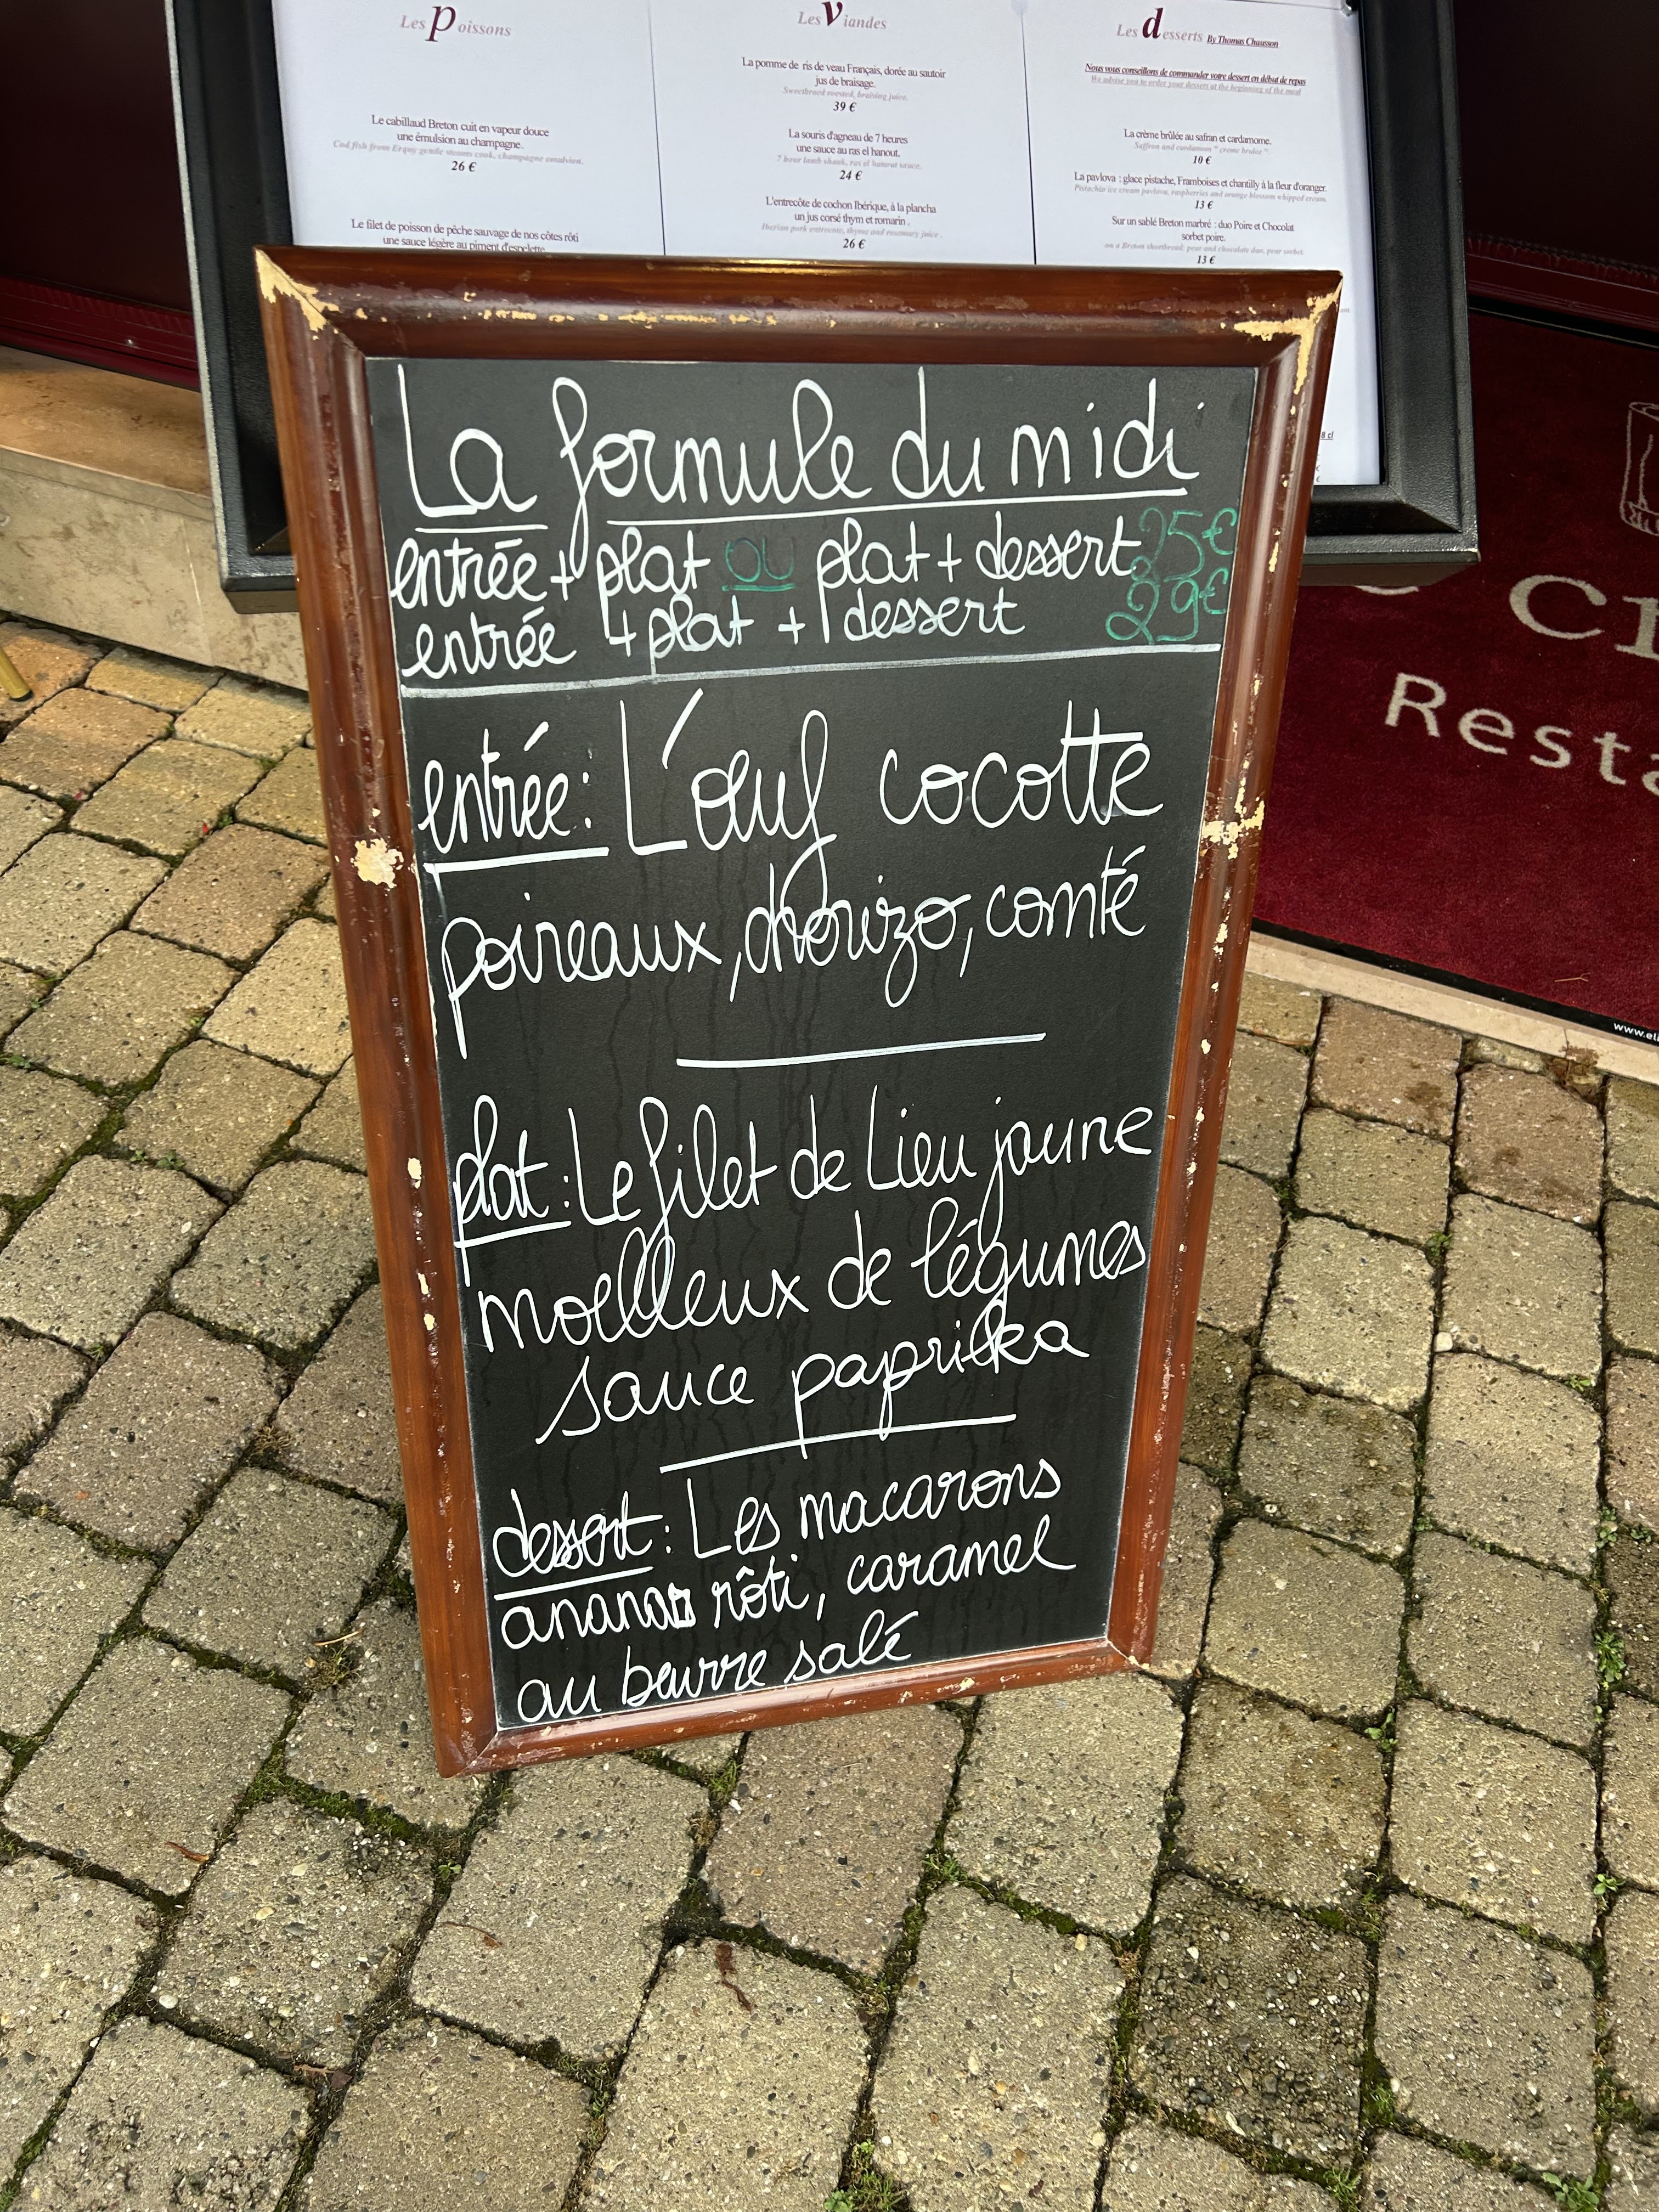 Les Poissons
Le cabillaud Breton cuit en vapeur douce
une émulsion au champagne.
Cod fish from Erquy gentle steams cook, champagne emulsion.
26 €
Le filet de poisson de pêche sauvage de nos côtes rôti
une sauce légère au piment d'espelette
Les Viandes
La pomme de ris de veau Français, dorée au sautoir
jus de braisage.
Sweetbread roasted, braising juice.
39 €
La souris d'agneau de 7 heures
une sauce au ras el hanout.
7 hour lamb shank, ras el hanout sauce.
24 €
L'entrecôte de cochon Ibérique, à la plancha
un jus corsé thym et romarin .
Iberian pork entrecote, thyme and rosemary juice .
26 €
Les desserts By Thomas Chausson
Nous vous conseillons de commander votre dessert en début de repas
We advise you to order your dessert at the beginning of the meal
La crème brûlée au safran et cardamome.
Saffron and cardamom " creme brulee ".
10 €
La pavlova : glace pistache, Framboises et chantilly à la fleur d'oranger.
Pistachio ice cream pavlova, raspberries and orange blossom whipped cream.
13 €
Sur un sablé Breton marbré : duo Poire et Chocolat
sorbet poire.
on a Breton shortbread: pear and chocolate duo, pear sorbet.
13 €
8 cl
La formule du midi
entrée + plat ou plat + dessert 25€
entrée + plat + dessert 29€
entrée: L'œuf cocotte
poireaux, chorizo, comté
plat : Le filet de Lieu jaune
moelleux de légumes
sauce paprika
dessert : Les macarons
ananas rôti, caramel
au beurre salé
Resta
www.eli